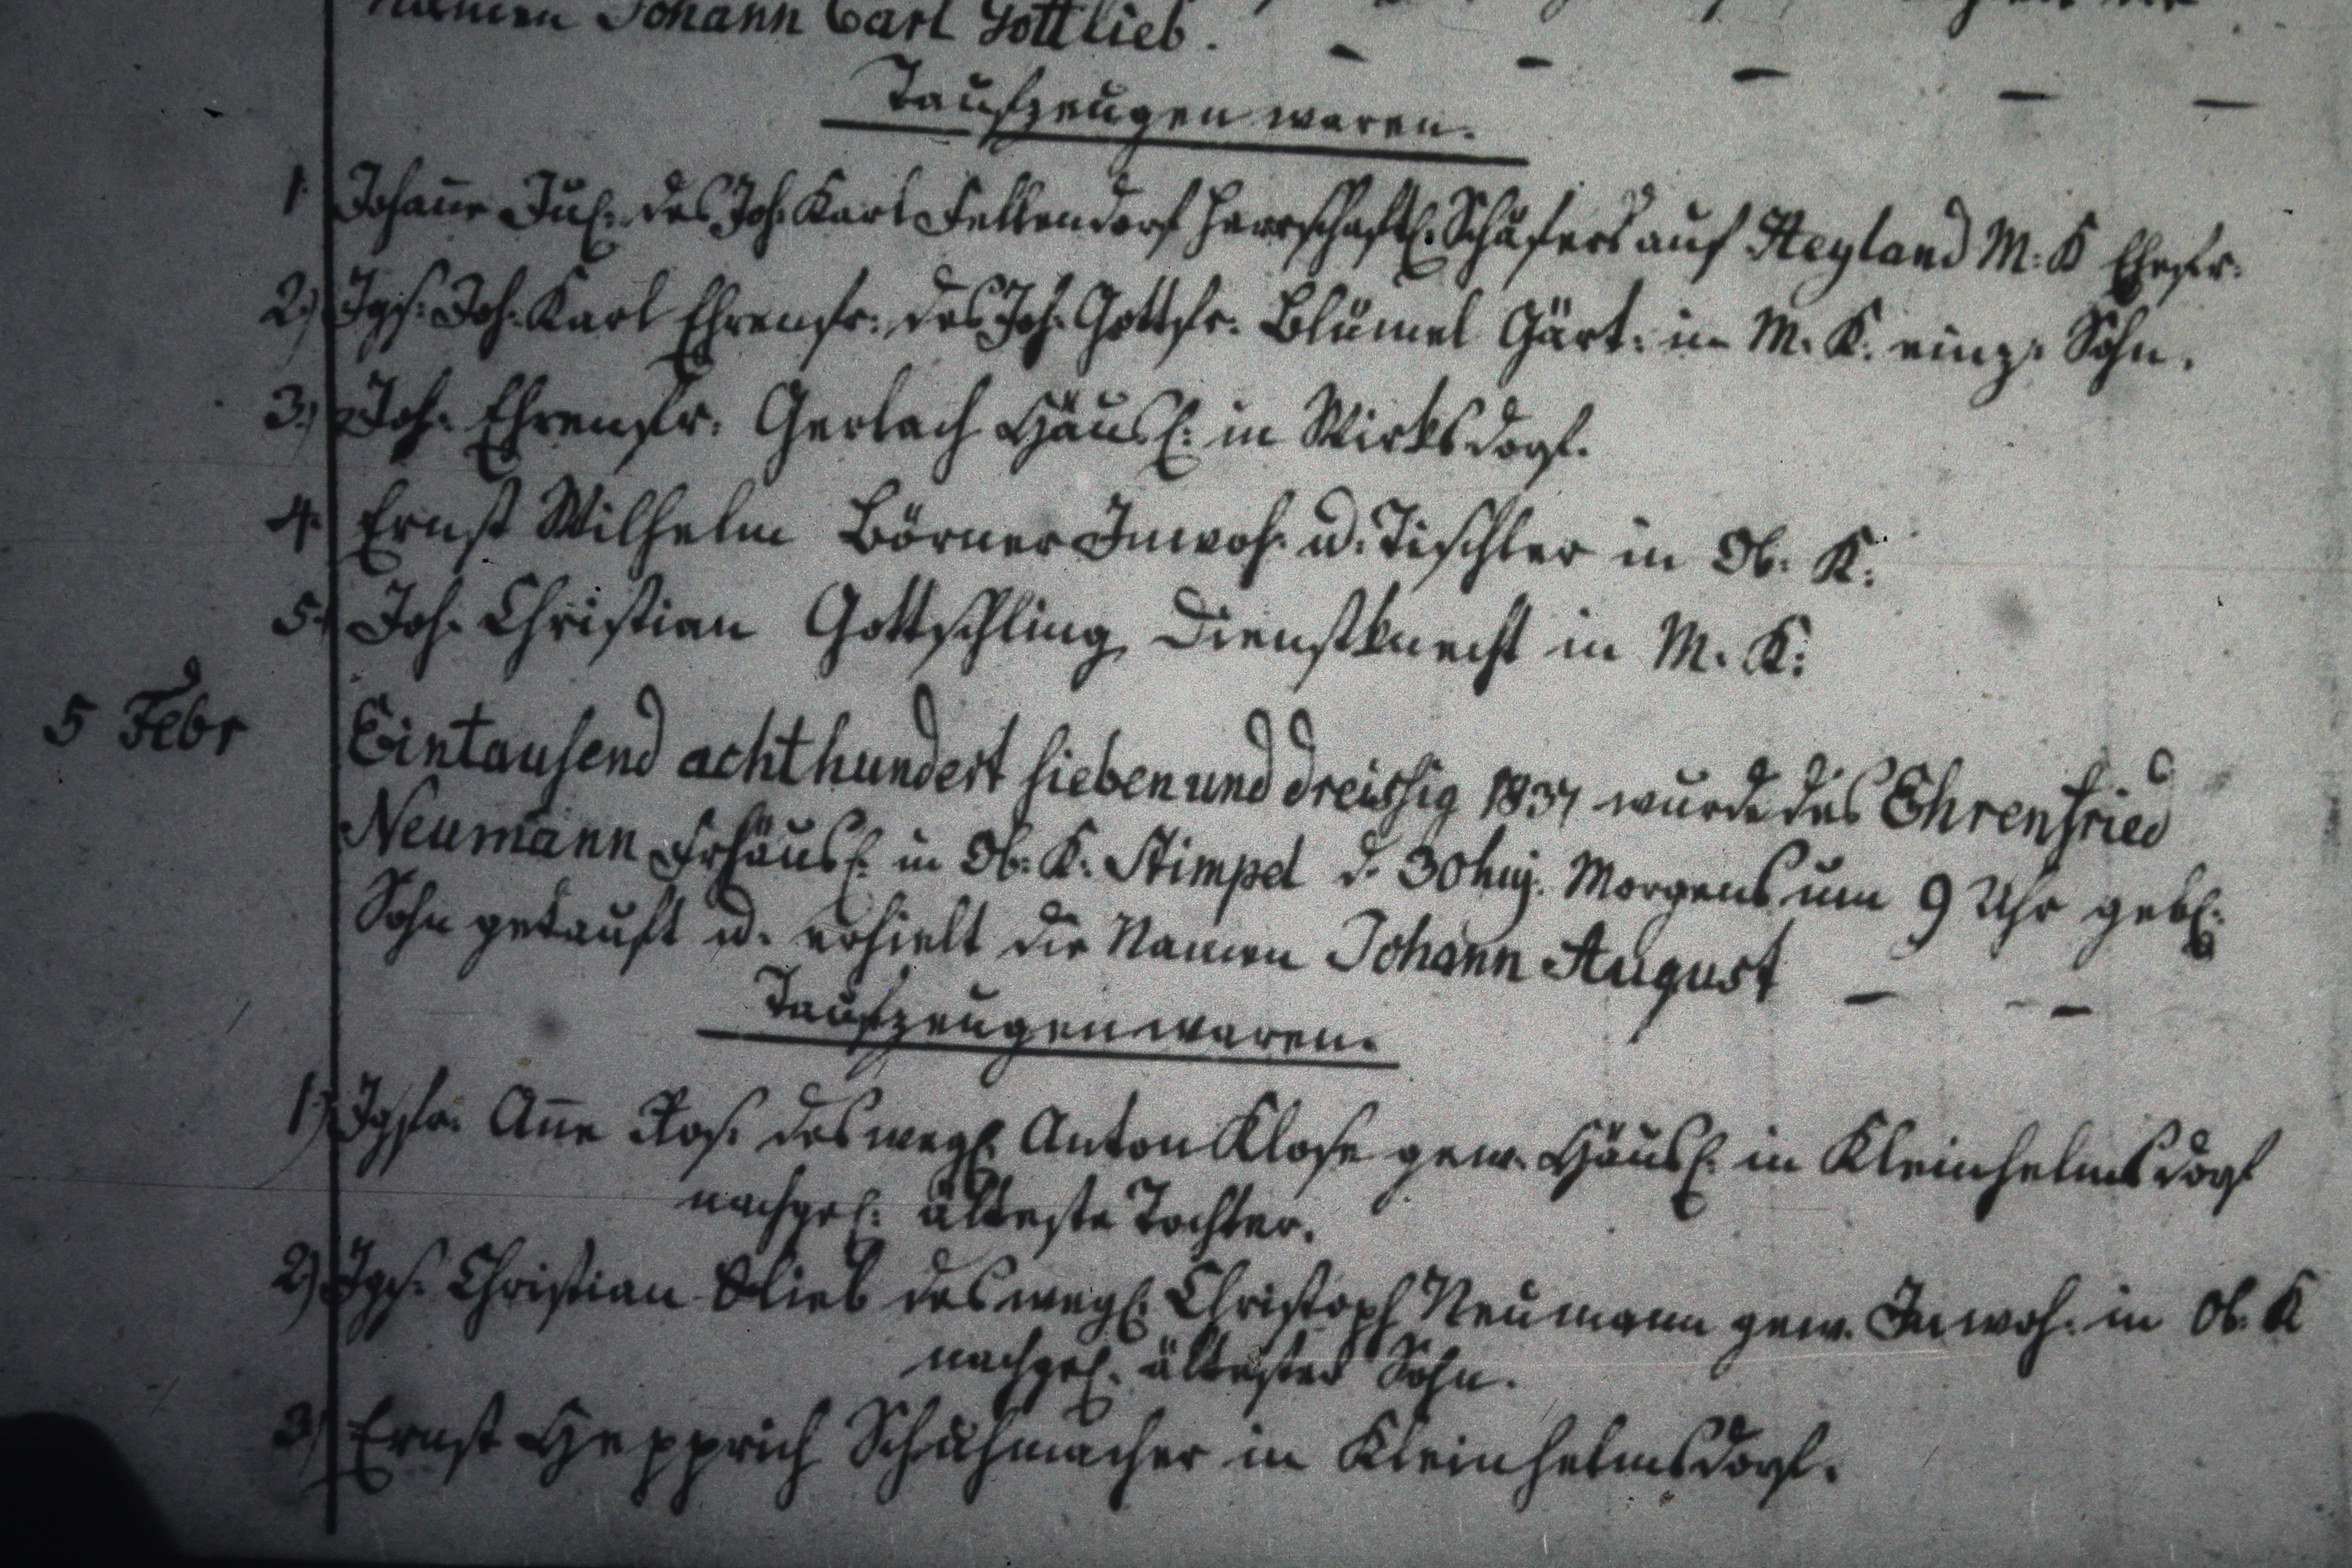 namen Johann Carl Gottlieb. – – – – –
Taufzeugen waren.
1. Johañe Jul. des Joh. Karl Fellendorf herrschaftl. Schäfers auf Heyland M. K Ehefr.
2.) Jgs. Joh. Karl Ehrenfr. des Joh. Gottfr. Blümel Gärt. in M. K. einz. Sohn.
3.) Joh. Ehrenfr. Gerlach Häusl. in Wirksdorf.
4. Ernst Wilhelm Börner Inwoh. u. Tischler in Ob. K.
5. Joh. Christian Gottschling Dienstknecht in M. K.
5 Febr Eintausend achthundert sieben und dreissig 1837 wurde des Ehrenfried
Neumann Frhäusl. in Ob. K. Stimpel d. 30 huj. Morgens um 9 Uhr gebl.
Sohn getauft u. erhielt die Namen Johann August – –
Taufzeugen waren.
1.) Jgfr. Añe Ros. des wegl. Anton Klose gew. Häusl. in Kleinhelmsdorf
nachgel. älteste Tochter.
2.) Jgs. Christian Glieb des wegl. Christoph Neumann gew. Inwoh. in Ob. K
nachgel. ältester Sohn.
3) Ernst Hepprich Schuhmacher in Kleinhelmsdorf.